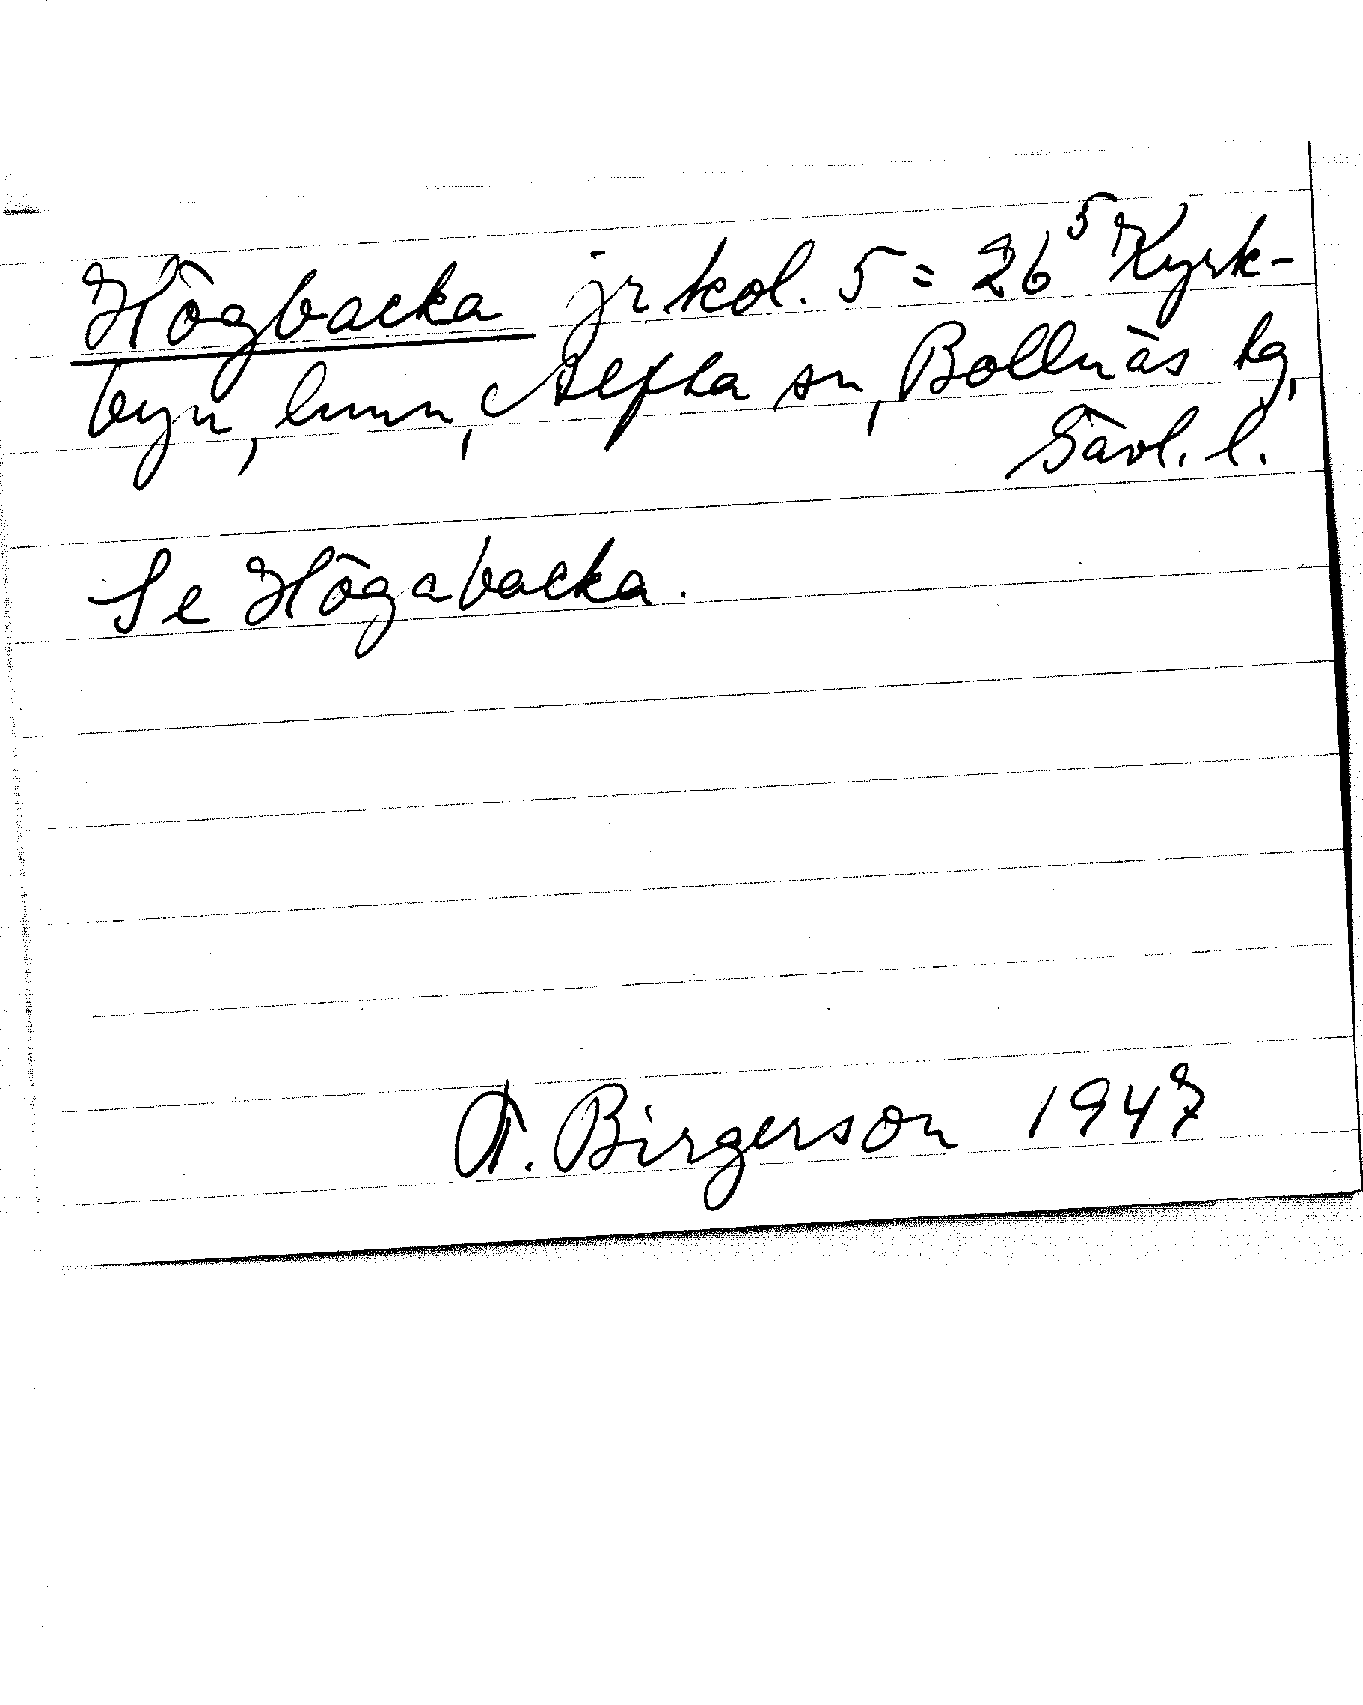 Högbacka jr kol. 5 = 26⁵ Kyrk-
byn, Alfta sn, Bollnäs tg,
Gävl. l.
Se Högabacka.
F. Birgerson 1947